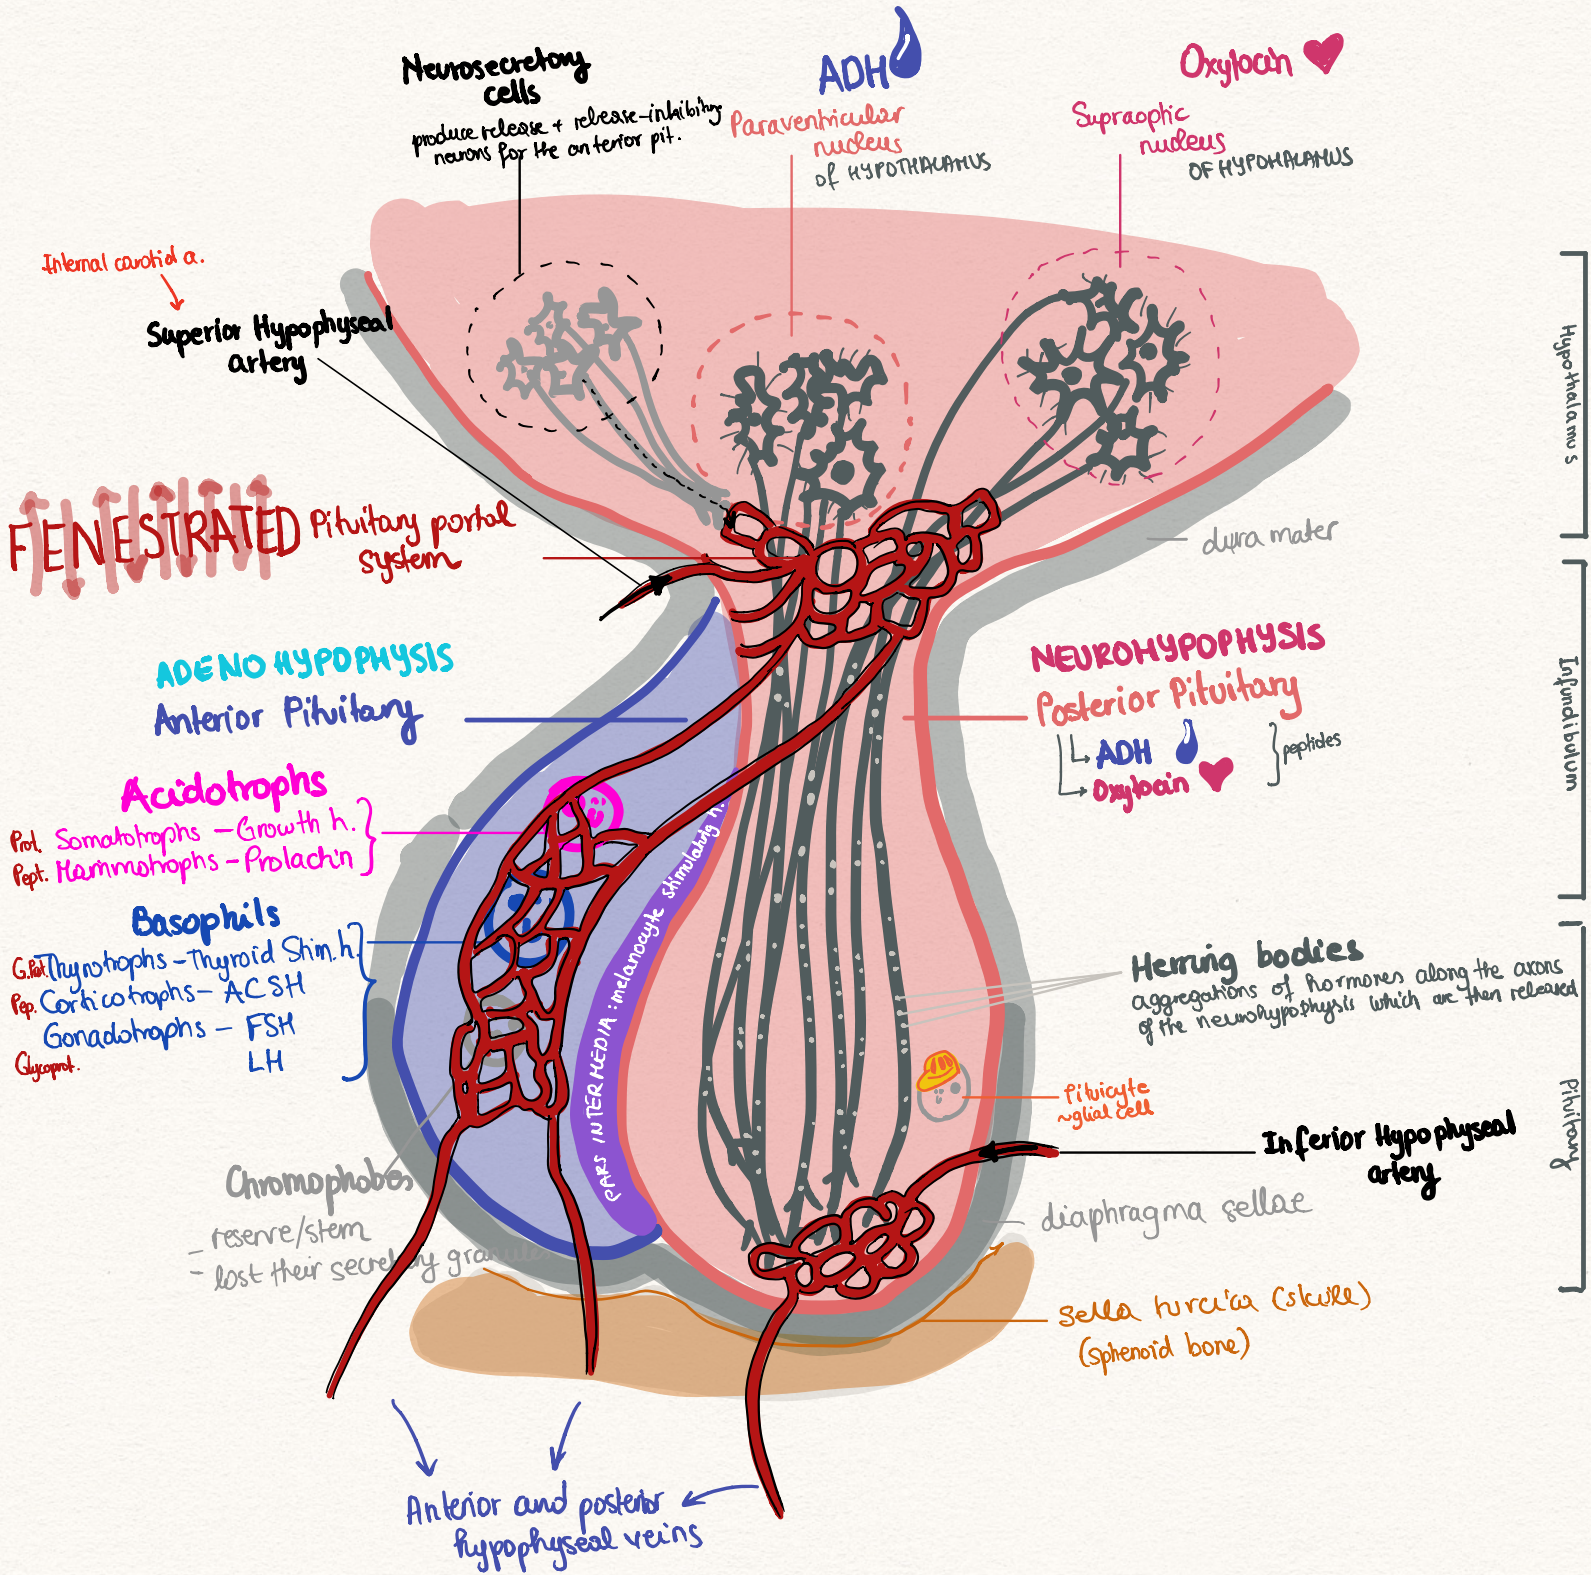 Neurosecretory
cells
produce release + release-inhibiting
neurons for the anterior pit.
ADH
Paraventricular
nucleus
of HYPOTHALAMUS
Oxytocin
Supraoptic
nucleus
OF HYPOHALAMUS
Internal carotid a.
Superior Hypophyseal
artery
FENESTRATED Pituitary portal
system
Hypothalamus
dura mater
ADENOHYPOPHYSIS
Anterior Pituitary
NEUROHYPOPHYSIS
Posterior Pituitary
ADH
Oxytocin
peptides
Infundibulum
Acidotrophs
Prot. Somatotrophs - Growth h.
Pept. Mammotrophs - Prolactin
Basophils
G.Prot. Thyrotrophs - Thyroid Stim. h.
Pep. Corticotrophs - ACSH
Gonadotrophs - FSH
Glycoprot. LH
PARS INTERMEDIA: melanocyte stimulating h.
Herring bodies
aggregations of hormones along the axons
of the neurohypophysis which are then released
Pituicyte
~glial cell
Inferior Hypophyseal
artery
Pituitary
Chromophobes
- reserve/stem
- lost their secretory granules
diaphragma sellae
sella turcica (skull)
(sphenoid bone)
Anterior and posterior
hypophyseal veins